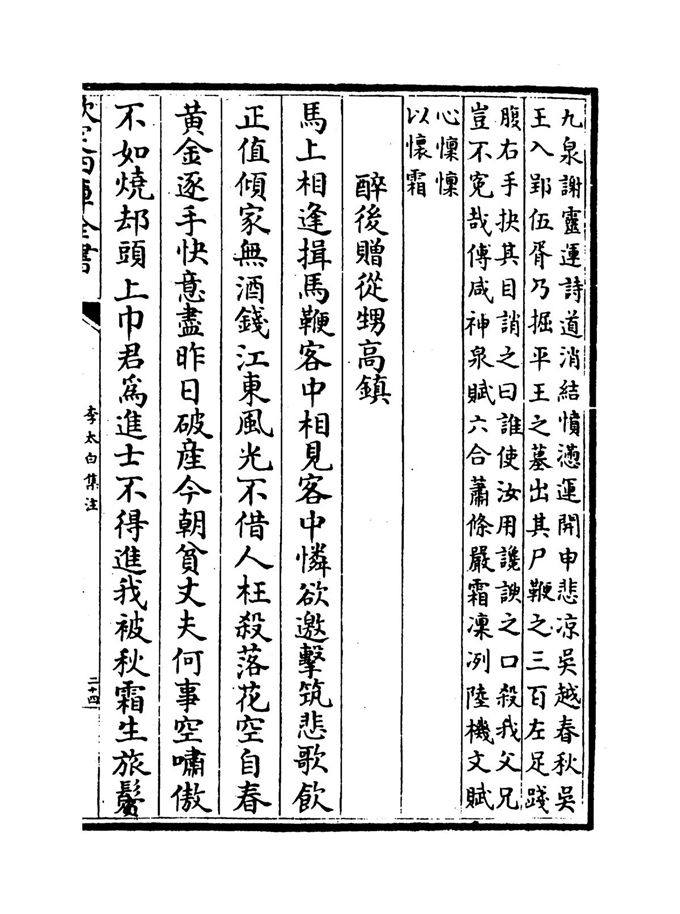 九泉謝靈運詩道消結憤懣運開申悲涼吳越春秋吳
王入郢伍胥乃掘平王之墓出其尸鞭之三百左足踐
腹右手抉其目誚之曰誰使汝用讒諛之口殺我父兄
豈不寃哉傅咸神泉賦六合蕭條嚴霜凜冽陸機文賦
心懍懍
以懷霜
醉後贈從甥高鎮
馬上相逢揖馬鞭客中相見客中憐欲邀擊筑悲歌飲
正值傾家無酒錢江東風光不借人枉殺落花空自春
黃金逐手快意盡昨日破産今朝貧丈夫何事空嘯傲
不如燒却頭上巾君為進士不得進我被秋霜生旅鬢
欽定四庫全書
李太白集注
二十四